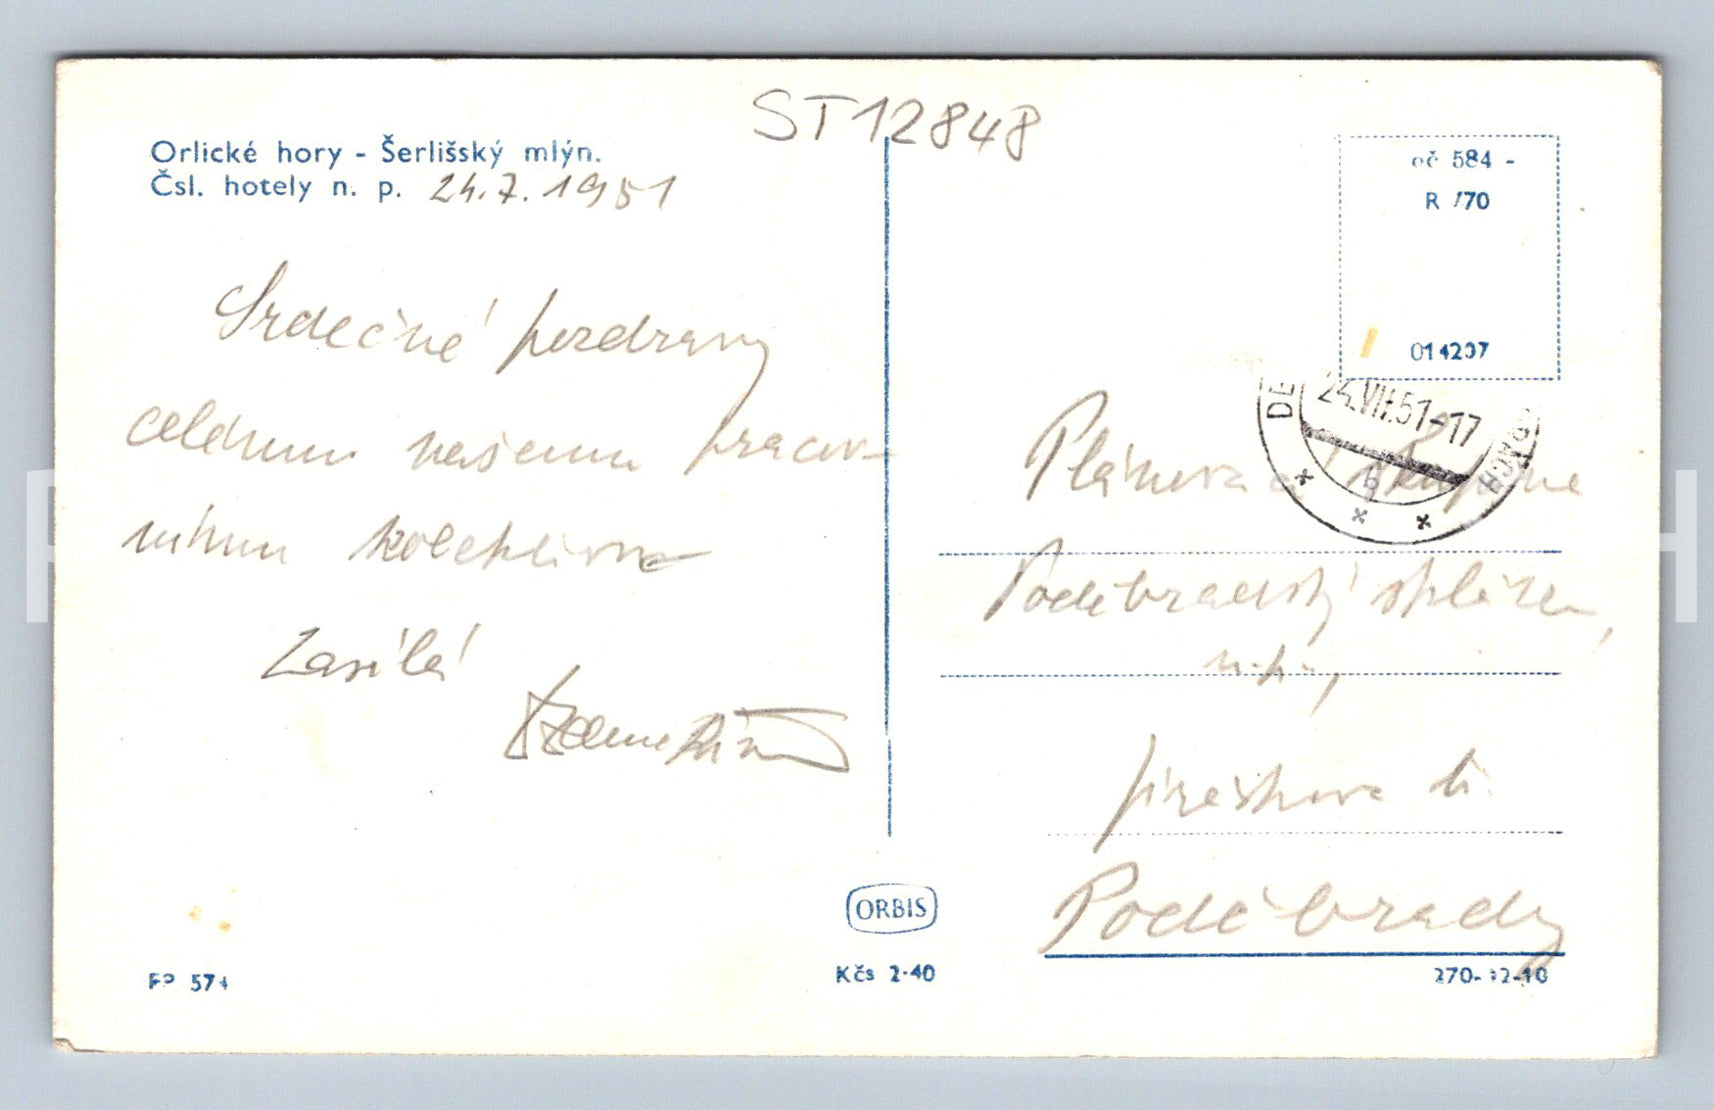 ST12848
Orlické hory - Šerlišský mlýn.
Čsl. hotely n. p. 24.7.1951
Srdečné pozdravy
celému našemu pracov-
nímu kolektivu
Zasílá
oč 584 -
R /70
014207
24.VII.51-17
DE
b
Plánovací skupine
Poděbradský skláren,
n.p.,
Jiráskova ti.
Poděbrady
ORBIS
Kčs 2·40
FP 574